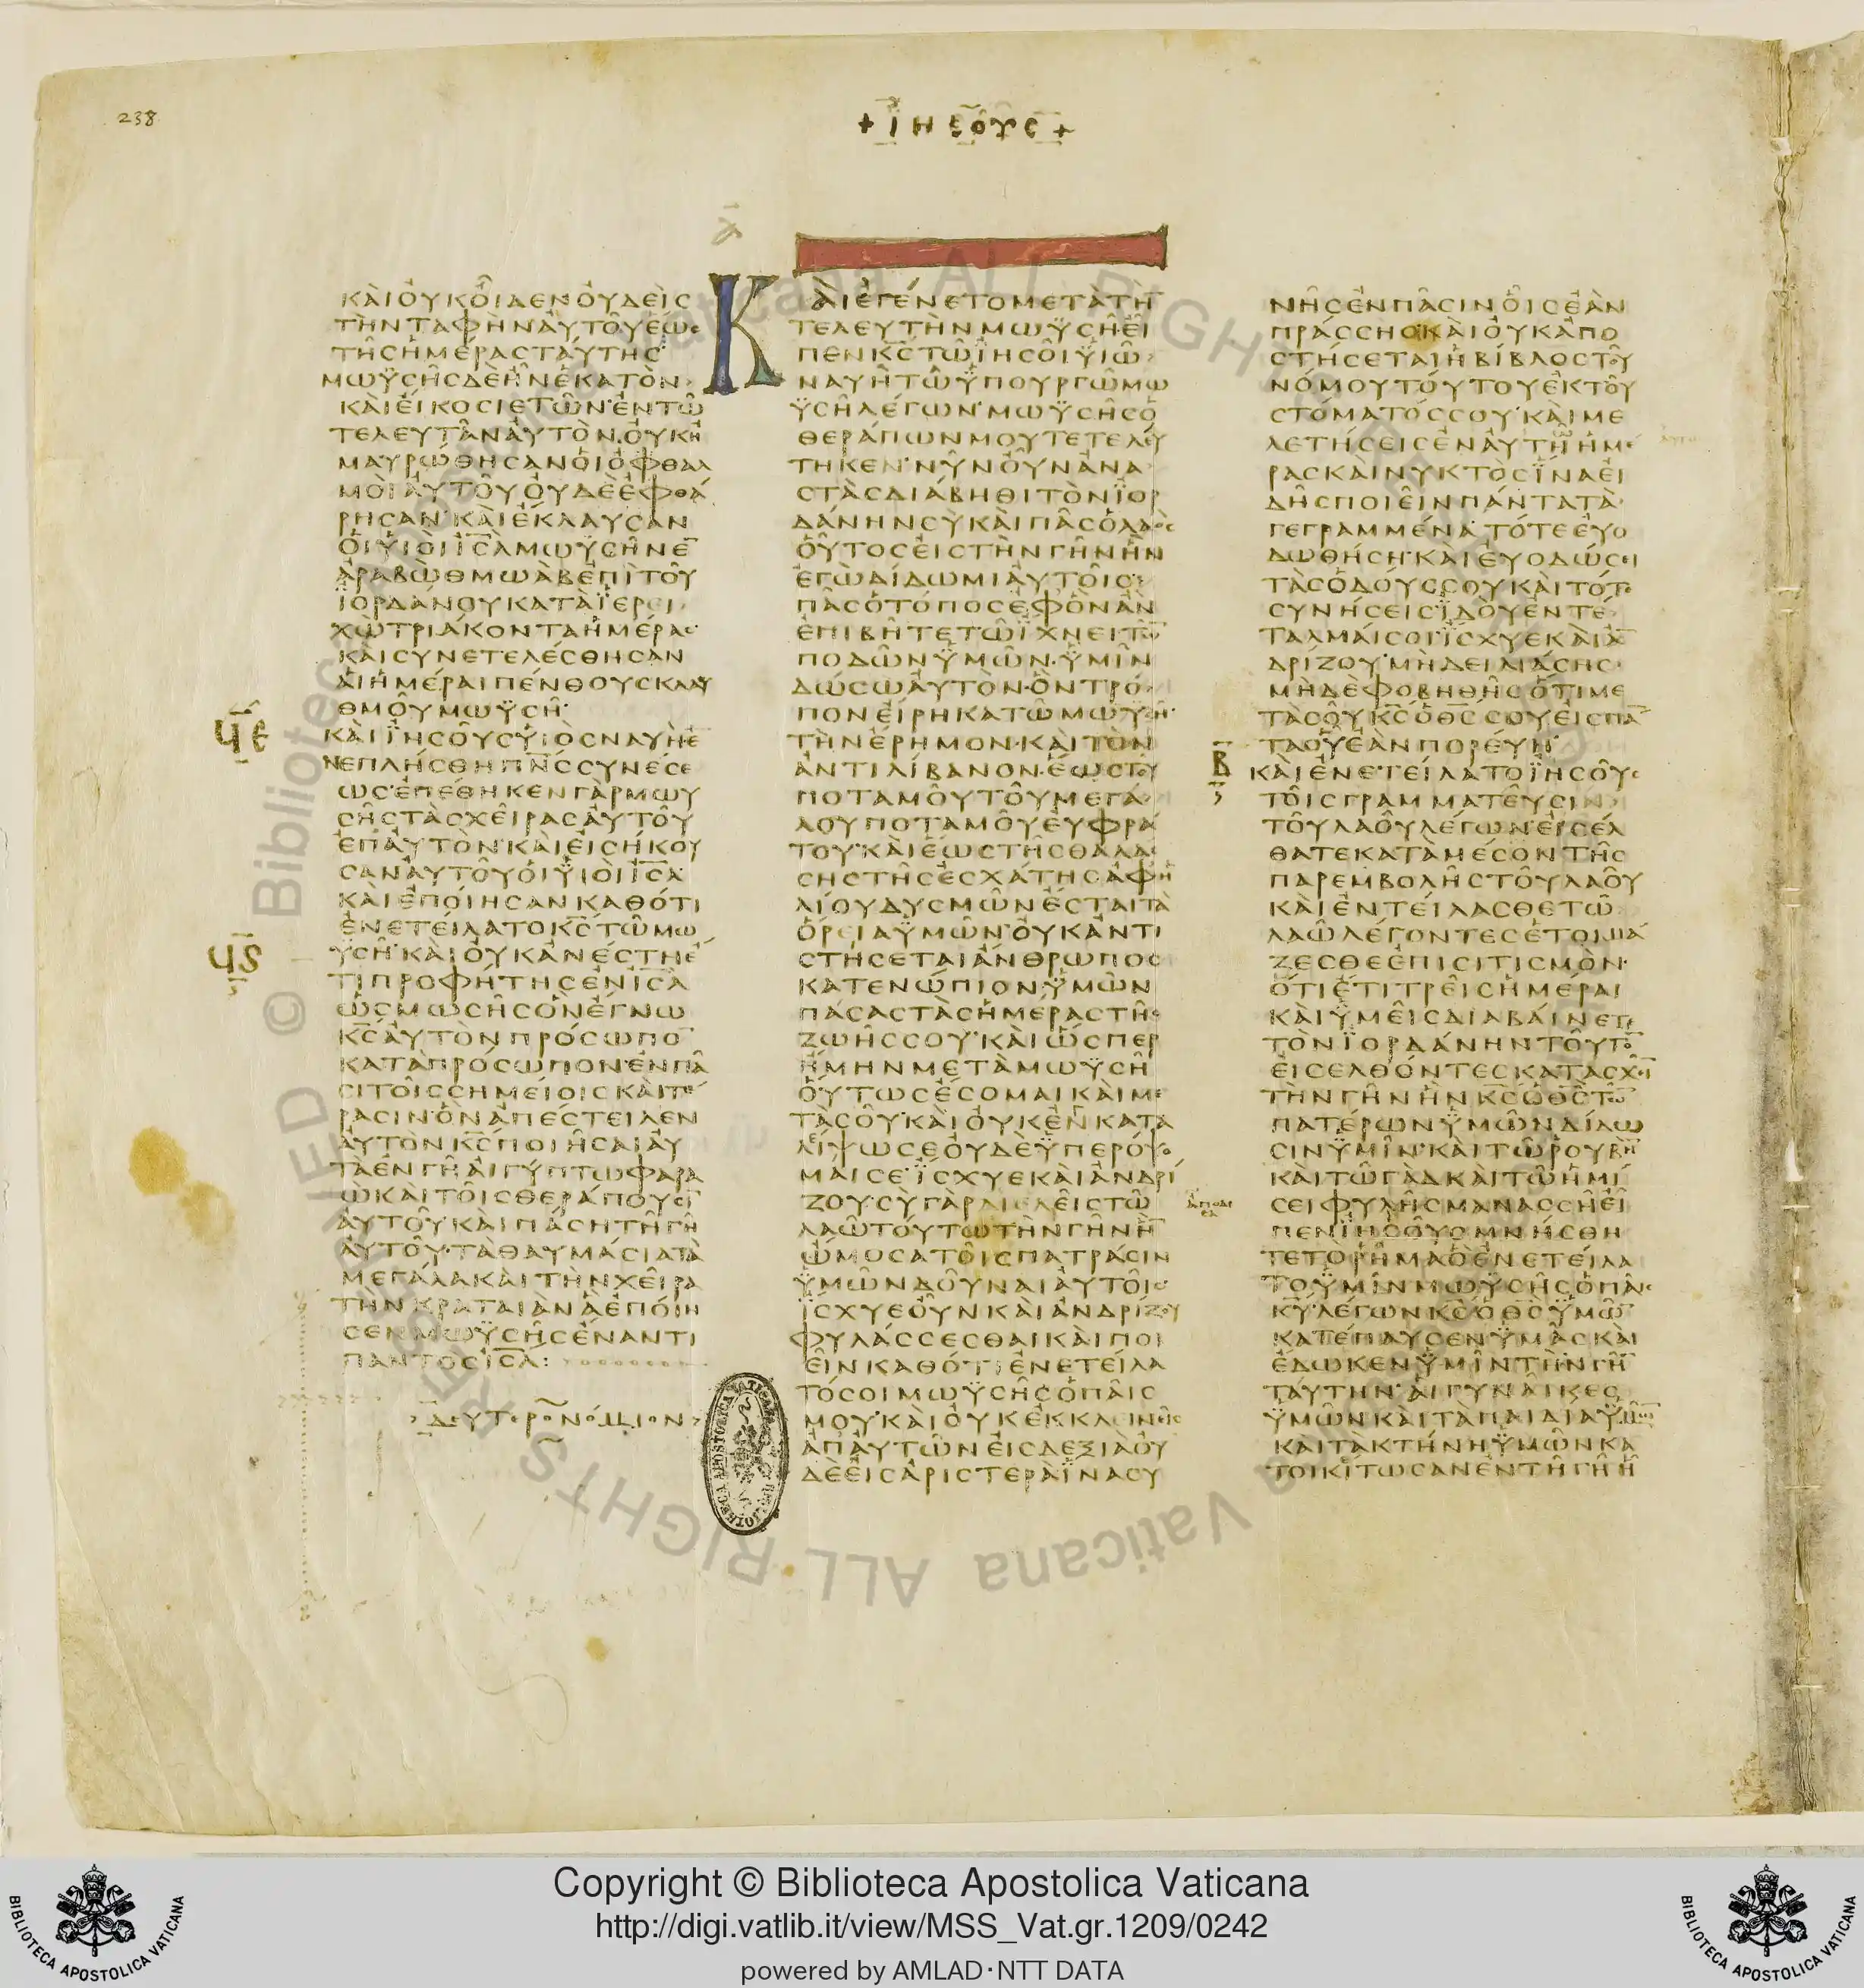 238
+ ΙΗΣΟΥΣ +
ΚΑΙ ΟΥΚ ΟΙΔΕΝ ΟΥΔΕΙΣ
ΤΗΝ ΤΑΦΗΝ ΑΥΤΟΥ ΕΩΣ
ΤΗΣ ΗΜΕΡΑΣ ΤΑΥΤΗΣ
ΜΩΫΣΗΣ ΔΕ ΗΝ ΕΚΑΤΟΝ
ΚΑΙ ΕΙΚΟΣΙ ΕΤΩΝ ΕΝ ΤΩ
ΤΕΛΕΥΤΑΝ ΑΥΤΟΝ ΟΥΚ Η
ΜΑΥΡΩΘΗΣΑΝ ΟΙ ΟΦΘΑΛ
ΜΟΙ ΑΥΤΟΥ ΟΥΔΕ ΕΦΘΑ
ΡΗΣΑΝ ΚΑΙ ΕΚΛΑΥΣΑΝ
ΟΙ ΥΙΟΙ ΙΣΛ ΜΩΥΣΗΝ Ε
ΑΡΑΒΩΘ ΜΩΑΒ ΕΠΙ ΤΟΥ
ΙΟΡΔΑΝΟΥ ΚΑΤΑ ΙΕΡΕΙ
ΧΩ ΤΡΙΑΚΟΝΤΑ ΗΜΕΡΑΣ
ΚΑΙ ΣΥΝΕΤΕΛΕΣΘΗΣΑΝ
ΑΙ ΗΜΕΡΑΙ ΠΕΝΘΟΥΣ ΚΛΑΥ
ΘΜΟΥ ΜΩΥΣΗ
ϤΕ
ΚΑΙ ΙΗΣΟΥΣ ΥΙΟΣ ΝΑΥΗ Ε
ΝΕΠΛΗΣΘΗ ΠΝΣ ΣΥΝΕΣΕ
ΩΣ ΕΠΕΘΗΚΕΝ ΓΑΡ ΜΩΥ
ΣΗΣ ΤΑΣ ΧΕΙΡΑΣ ΑΥΤΟΥ
ΕΠ ΑΥΤΟΝ ΚΑΙ ΕΙΣΗΚΟΥ
ΣΑΝ ΑΥΤΟΥ ΟΙ ΥΙΟΙ ΙΣΛ
ΚΑΙ ΕΠΟΙΗΣΑΝ ΚΑΘΟΤΙ
ΕΝΕΤΕΙΛΑΤΟ ΚΣ ΤΩ ΜΩ
ϤϚ
ΥΣΗ ΚΑΙ ΟΥΚ ΑΝΕΣΤΗ Ε
ΤΙ ΠΡΟΦΗΤΗΣ ΕΝ ΙΣΛ
ΩΣ ΜΩΣΗΣ ΟΝ ΕΓΝΩ
ΚΣ ΑΥΤΟΝ ΠΡΟΣΩΠΟ
ΚΑΤΑ ΠΡΟΣΩΠΟΝ ΕΝ ΠΑ
ΣΙ ΤΟΙΣ ΣΗΜΕΙΟΙΣ ΚΑΙ ΤΕ
ΡΑΣΙΝ ΟΝ ΑΠΕΣΤΕΙΛΕΝ
ΑΥΤΟΝ ΚΣ ΠΟΙΗΣΑΙ ΑΥ
ΤΑ ΕΝ ΓΗ ΑΙΓΥΠΤΩ ΦΑΡΑ
Ω ΚΑΙ ΤΟΙΣ ΘΕΡΑΠΟΥΣΙ
ΑΥΤΟΥ ΚΑΙ ΠΑΣΗ ΤΗ ΓΗ
ΑΥΤΟΥ ΤΑ ΘΑΥΜΑΣΙΑ ΤΑ
ΜΕΓΑΛΑ ΚΑΙ ΤΗΝ ΧΕΙΡΑ
ΤΗΝ ΚΡΑΤΑΙΑΝ Α ΕΠΟΙΗ
ΣΕΝ ΜΩΥΣΗΣ ΕΝΑΝΤΙ
ΠΑΝΤΟΣ ΙΣΛ:
ΔΕΥΤΕΡΟΝΟΜΙΟΝ
Α
ΚΑΙ ΕΓΕΝΕΤΟ ΜΕΤΑ ΤΗ
ΤΕΛΕΥΤΗΝ ΜΩΫΣΗ ΕΙ
ΠΕΝ ΚΣ ΤΩ ΙΗΣΟΙ ΥΙΩ
ΝΑΥΗ ΤΩ ΥΠΟΥΡΓΩ ΜΩ
ΥΣΗ ΛΕΓΩΝ ΜΩΥΣΗΣ Ο
ΘΕΡΑΠΩΝ ΜΟΥ ΤΕΤΕΛΕΥ
ΤΗΚΕΝ ΝΥΝ ΟΥΝ ΑΝΑ
ΣΤΑΣ ΔΙΑΒΗΘΙ ΤΟΝ ΙΟΡ
ΔΑΝΗΝ ΣΥ ΚΑΙ ΠΑΣ Ο ΛΑΟΣ
ΟΥΤΟΣ ΕΙΣ ΤΗΝ ΓΗΝ ΗΝ
ΕΓΩ ΔΙΔΩΜΙ ΑΥΤΟΙΣ
ΠΑΣ Ο ΤΟΠΟΣ ΕΦ ΟΝ ΑΝ
ΕΠΙΒΗΤΕ ΤΩ ΙΧΝΕΙ ΤΩ
ΠΟΔΩΝ ΥΜΩΝ ΥΜΙΝ
ΔΩΣΩ ΑΥΤΟΝ ΟΝ ΤΡΟ
ΠΟΝ ΕΙΡΗΚΑ ΤΩ ΜΩΥΣΗ
ΤΗΝ ΕΡΗΜΟΝ ΚΑΙ ΤΟΝ
ΑΝΤΙΛΙΒΑΝΟΝ ΕΩΣ ΤΟΥ
ΠΟΤΑΜΟΥ ΤΟΥ ΜΕΓΑ
ΛΟΥ ΠΟΤΑΜΟΥ ΕΥΦΡΑ
ΤΟΥ ΚΑΙ ΕΩΣ ΤΗΣ ΘΑΛΑΣ
ΣΗΣ ΤΗΣ ΕΣΧΑΤΗΣ ΑΦ Η
ΛΙΟΥ ΔΥΣΜΩΝ ΕΣΤΑΙ ΤΑ
ΟΡΕΙΑ ΥΜΩΝ ΟΥΚ ΑΝΤΙ
ΣΤΗΣΕΤΑΙ ΑΝΘΡΩΠΟΣ
ΚΑΤΕΝΩΠΙΟΝ ΥΜΩΝ
ΠΑΣΑΣ ΤΑΣ ΗΜΕΡΑΣ ΤΗΣ
ΖΩΗΣ ΣΟΥ ΚΑΙ ΩΣΠΕΡ
ΗΜΗΝ ΜΕΤΑ ΜΩΥΣΗ
ΟΥΤΩΣ ΕΣΟΜΑΙ ΚΑΙ ΜΕ
ΤΑ ΣΟΥ ΚΑΙ ΟΥΚ ΕΝΚΑΤΑ
ΛΕΙΨΩ ΣΕ ΟΥΔΕ ΥΠΕΡΟΨΟ
ΜΑΙ ΣΕ ΙΣΧΥΕ ΚΑΙ ΑΝΔΡΙ
ΖΟΥ ΣΥ ΓΑΡ ΔΙΕΛΕΙΣ ΤΩ
ΛΑΩ ΤΟΥΤΩ ΤΗΝ ΓΗΝ Η
ΩΜΟΣΑ ΤΟΙΣ ΠΑΤΡΑΣΙΝ
ΥΜΩΝ ΔΟΥΝΑΙ ΑΥΤΟΙΣ
ΙΣΧΥΕ ΟΥΝ ΚΑΙ ΑΝΔΡΙΖΟΥ
ΦΥΛΑΣΣΕΣΘΑΙ ΚΑΙ ΠΟΙ
ΕΙΝ ΚΑΘΟΤΙ ΕΝΕΤΕΙΛΑ
ΤΟ ΣΟΙ ΜΩΥΣΗΣ Ο ΠΑΙΣ
ΜΟΥ ΚΑΙ ΟΥΚ ΕΚΚΛΙΝΕΙΣ
ΑΠ ΑΥΤΩΝ ΕΙΣ ΔΕΞΙΑ ΟΥ
ΔΕ ΕΙΣ ΑΡΙΣΤΕΡΑ ΙΝΑ ΣΥ
ΝΗΣ ΕΝ ΠΑΣΙΝ ΟΙΣ ΕΑΝ
ΠΡΑΣΣΗΣ ΚΑΙ ΟΥΚ ΑΠΟ
ΣΤΗΣΕΤΑΙ Η ΒΙΒΛΟΣ ΤΟΥ
ΝΟΜΟΥ ΤΟΥΤΟΥ ΕΚ ΤΟΥ
ΣΤΟΜΑΤΟΣ ΣΟΥ ΚΑΙ ΜΕ
ΛΕΤΗΣΕΙΣ ΕΝ ΑΥΤΗ ΗΜΕ
ΡΑΣ ΚΑΙ ΝΥΚΤΟΣ ΙΝΑ ΕΙ
ΔΗΣ ΠΟΙΕΙΝ ΠΑΝΤΑ ΤΑ
ΓΕΓΡΑΜΜΕΝΑ ΤΟΤΕ ΕΥΟ
ΔΩΘΗΣΗ ΚΑΙ ΕΥΟΔΩΣΕΙ
ΤΑΣ ΟΔΟΥΣ ΣΟΥ ΚΑΙ ΤΟΤΕ
ΣΥΝΗΣΕΙΣ ΙΔΟΥ ΕΝΤΕ
ΤΑΛΜΑΙ ΣΟΙ ΙΣΧΥΕ ΚΑΙ Α
ΔΡΙΖΟΥ ΜΗ ΔΕΙΛΙΑΣΗΣ
ΜΗΔΕ ΦΟΒΗΘΗΣ ΟΤΙ ΜΕ
ΤΑ ΣΟΥ ΚΣ Ο ΘΣ ΣΟΥ ΕΙΣ ΠΑ
ΤΑ ΟΥ ΕΑΝ ΠΟΡΕΥΗ
Β
ΚΑΙ ΕΝΕΤΕΙΛΑΤΟ ΙΗΣΟΥΣ
ΤΟΙΣ ΓΡΑΜΜΑΤΕΥΣΙΝ
ΤΟΥ ΛΑΟΥ ΛΕΓΩΝ ΕΙΣΕΛ
ΘΑΤΕ ΚΑΤΑ ΜΕΣΟΝ ΤΗΣ
ΠΑΡΕΜΒΟΛΗΣ ΤΟΥ ΛΑΟΥ
ΚΑΙ ΕΝΤΕΙΛΑΣΘΕ ΤΩ
ΛΑΩ ΛΕΓΟΝΤΕΣ ΕΤΟΙΜΑ
ΖΕΣΘΕ ΕΠΙΣΙΤΙΣΜΟΝ
ΟΤΙ ΕΤΙ ΤΡΕΙΣ ΗΜΕΡΑΙ
ΚΑΙ ΥΜΕΙΣ ΔΙΑΒΑΙΝΕΤΕ
ΤΟΝ ΙΟΡΔΑΝΗΝ ΤΟΥΤΟ
ΕΙΣΕΛΘΟΝΤΕΣ ΚΑΤΑΣΧΕΙ
ΤΗΝ ΓΗΝ ΗΝ ΚΣ Ο ΘΣ ΤΩ
ΠΑΤΕΡΩΝ ΥΜΩΝ ΔΙΔΩ
ΣΙΝ ΥΜΙΝ ΚΑΙ ΤΩ ΡΟΥΒΗ
ΚΑΙ ΤΩ ΓΑΔ ΚΑΙ ΤΩ ΗΜΙ
ΣΕΙ ΦΥΛΗΣ ΜΑΝΑΣΣΗ ΕΙ
ΠΕΝ ΙΗΣΟΥΣ ΜΝΗΣΘΗ
ΤΕ ΤΟ ΡΗΜΑ Ο ΕΝΕΤΕΙΛΑ
ΤΟ ΥΜΙΝ ΜΩΥΣΗΣ Ο ΠΑΙΣ
ΚΥ ΛΕΓΩΝ ΚΣ Ο ΘΣ ΥΜΩ
ΚΑΤΕΠΑΥΣΕΝ ΥΜΑΣ ΚΑΙ
ΕΔΩΚΕΝ ΥΜΙΝ ΤΗΝ ΓΗ
ΤΑΥΤΗΝ ΑΙ ΓΥΝΑΙΚΕΣ
ΥΜΩΝ ΚΑΙ ΤΑ ΠΑΙΔΙΑ ΥΜΩ
ΚΑΙ ΤΑ ΚΤΗΝΗ ΥΜΩΝ ΚΑ
ΤΟΙΚΙΤΩΣΑΝ ΕΝ ΤΗ ΓΗ Η
Copyright © Biblioteca Apostolica Vaticana
http://digi.vatlib.it/view/MSS_Vat.gr.1209/0242
powered by AMLAD·NTT DATA
BIBLIOTECA APOSTOLICA VATICANA
BIBLIOTECA APOSTOLICA VATICANA